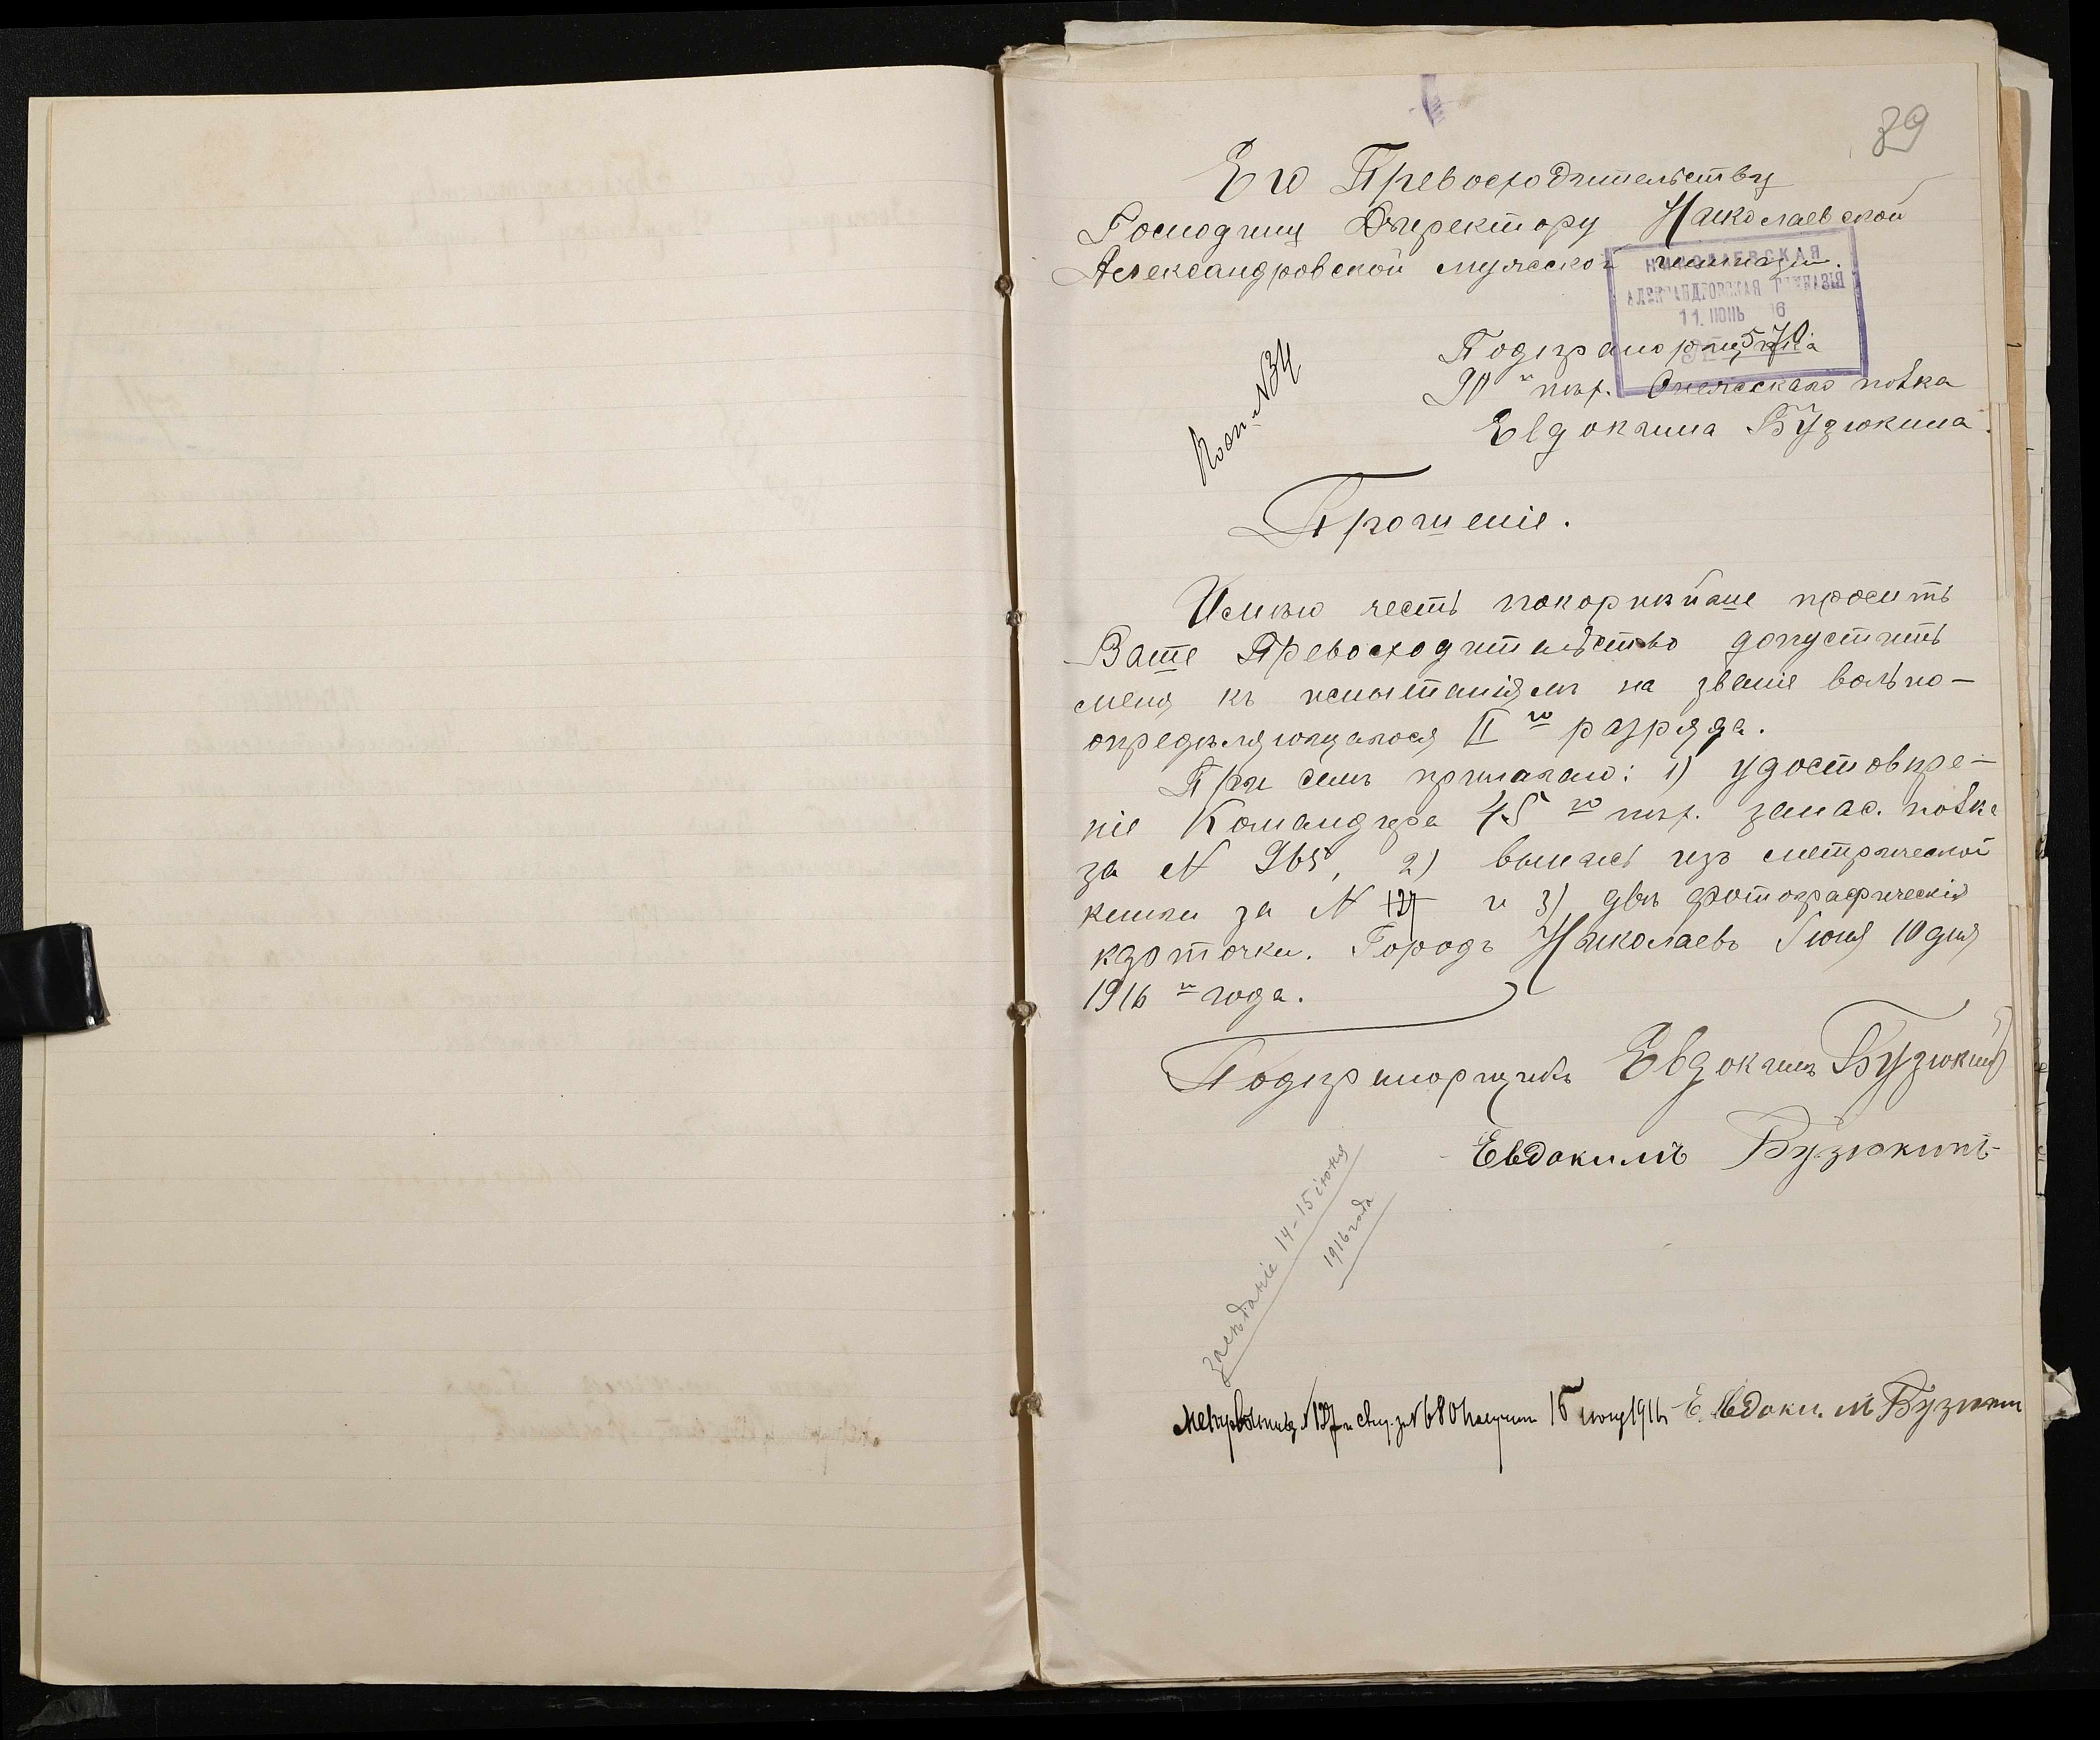 39
Его Превосходительству
Господину Директору Николаевской
Александровской мужской гимназіи.
НИКОЛАЕВСКАЯ
АЛЕКСАНДРОВСКАЯ ГИМНАЗІЯ
11. ІЮНЬ 16
570
Подпрапорщика
90го пѣх. Онежскаго полка
Евдокима Бузюкина.
№34
Прошеніе.
Имѣю честь покорнѣйше просить
Ваше Превосходительство допустить
меня къ испытаніямъ на званіе вольно-
опредѣляющагося II го разряда.
При семъ прилагаю: 1) удостовѣре-
ніе Командира 45 го пѣх. запас. полка
за № 965, 2) выпись изъ метрической
книги за № 127 и 3) двѣ фотографическія
карточки. Городъ Николаевъ Іюня 10 дня
1916 го года.
Подпрапорщикъ Евдокимъ Бузюкинъ
Евдокимъ Бузюкинъ
Засѣданіе 14-15 іюня
1916 года
№127 и за №680 получилъ 15 іюня 1916 Е. Евдоким Бузюкин